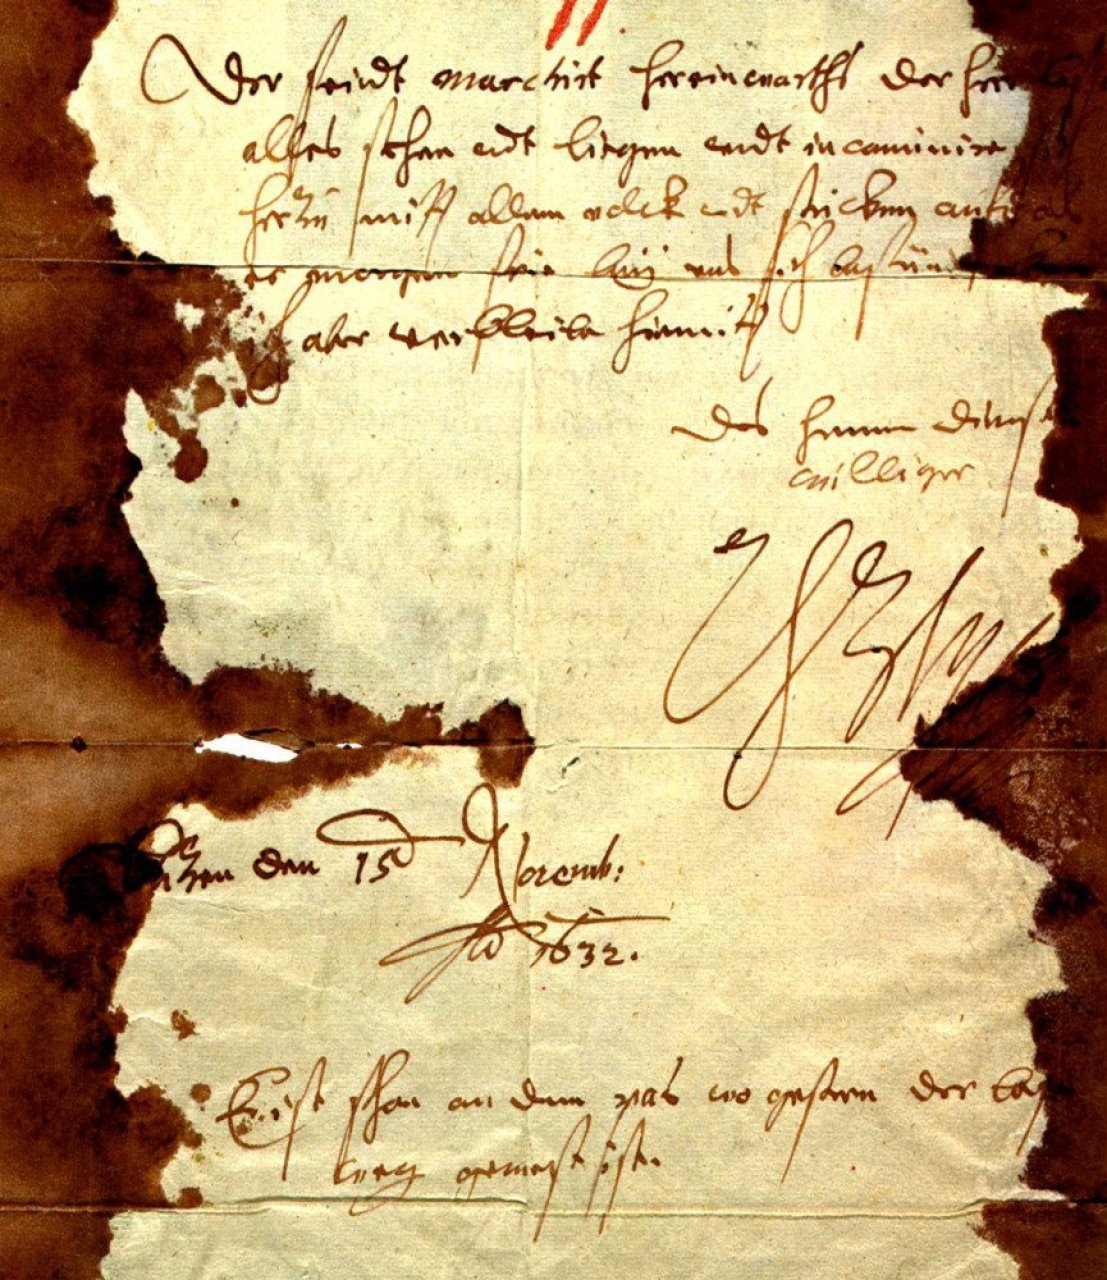 Der feindt marchirt hereinwarths der herr
alles stehen undt liegen undt incaminire
herzu mitt allem volck undt stücken auf das
er morgen frie bey uns sich befünden
ich aber verbleibe hiemitt
des herren dienst
williger
Lützen den 15 Novemb:
Ao 1632.
Er ist schon an dem pas wo gestern der bös
weg gewest ist.